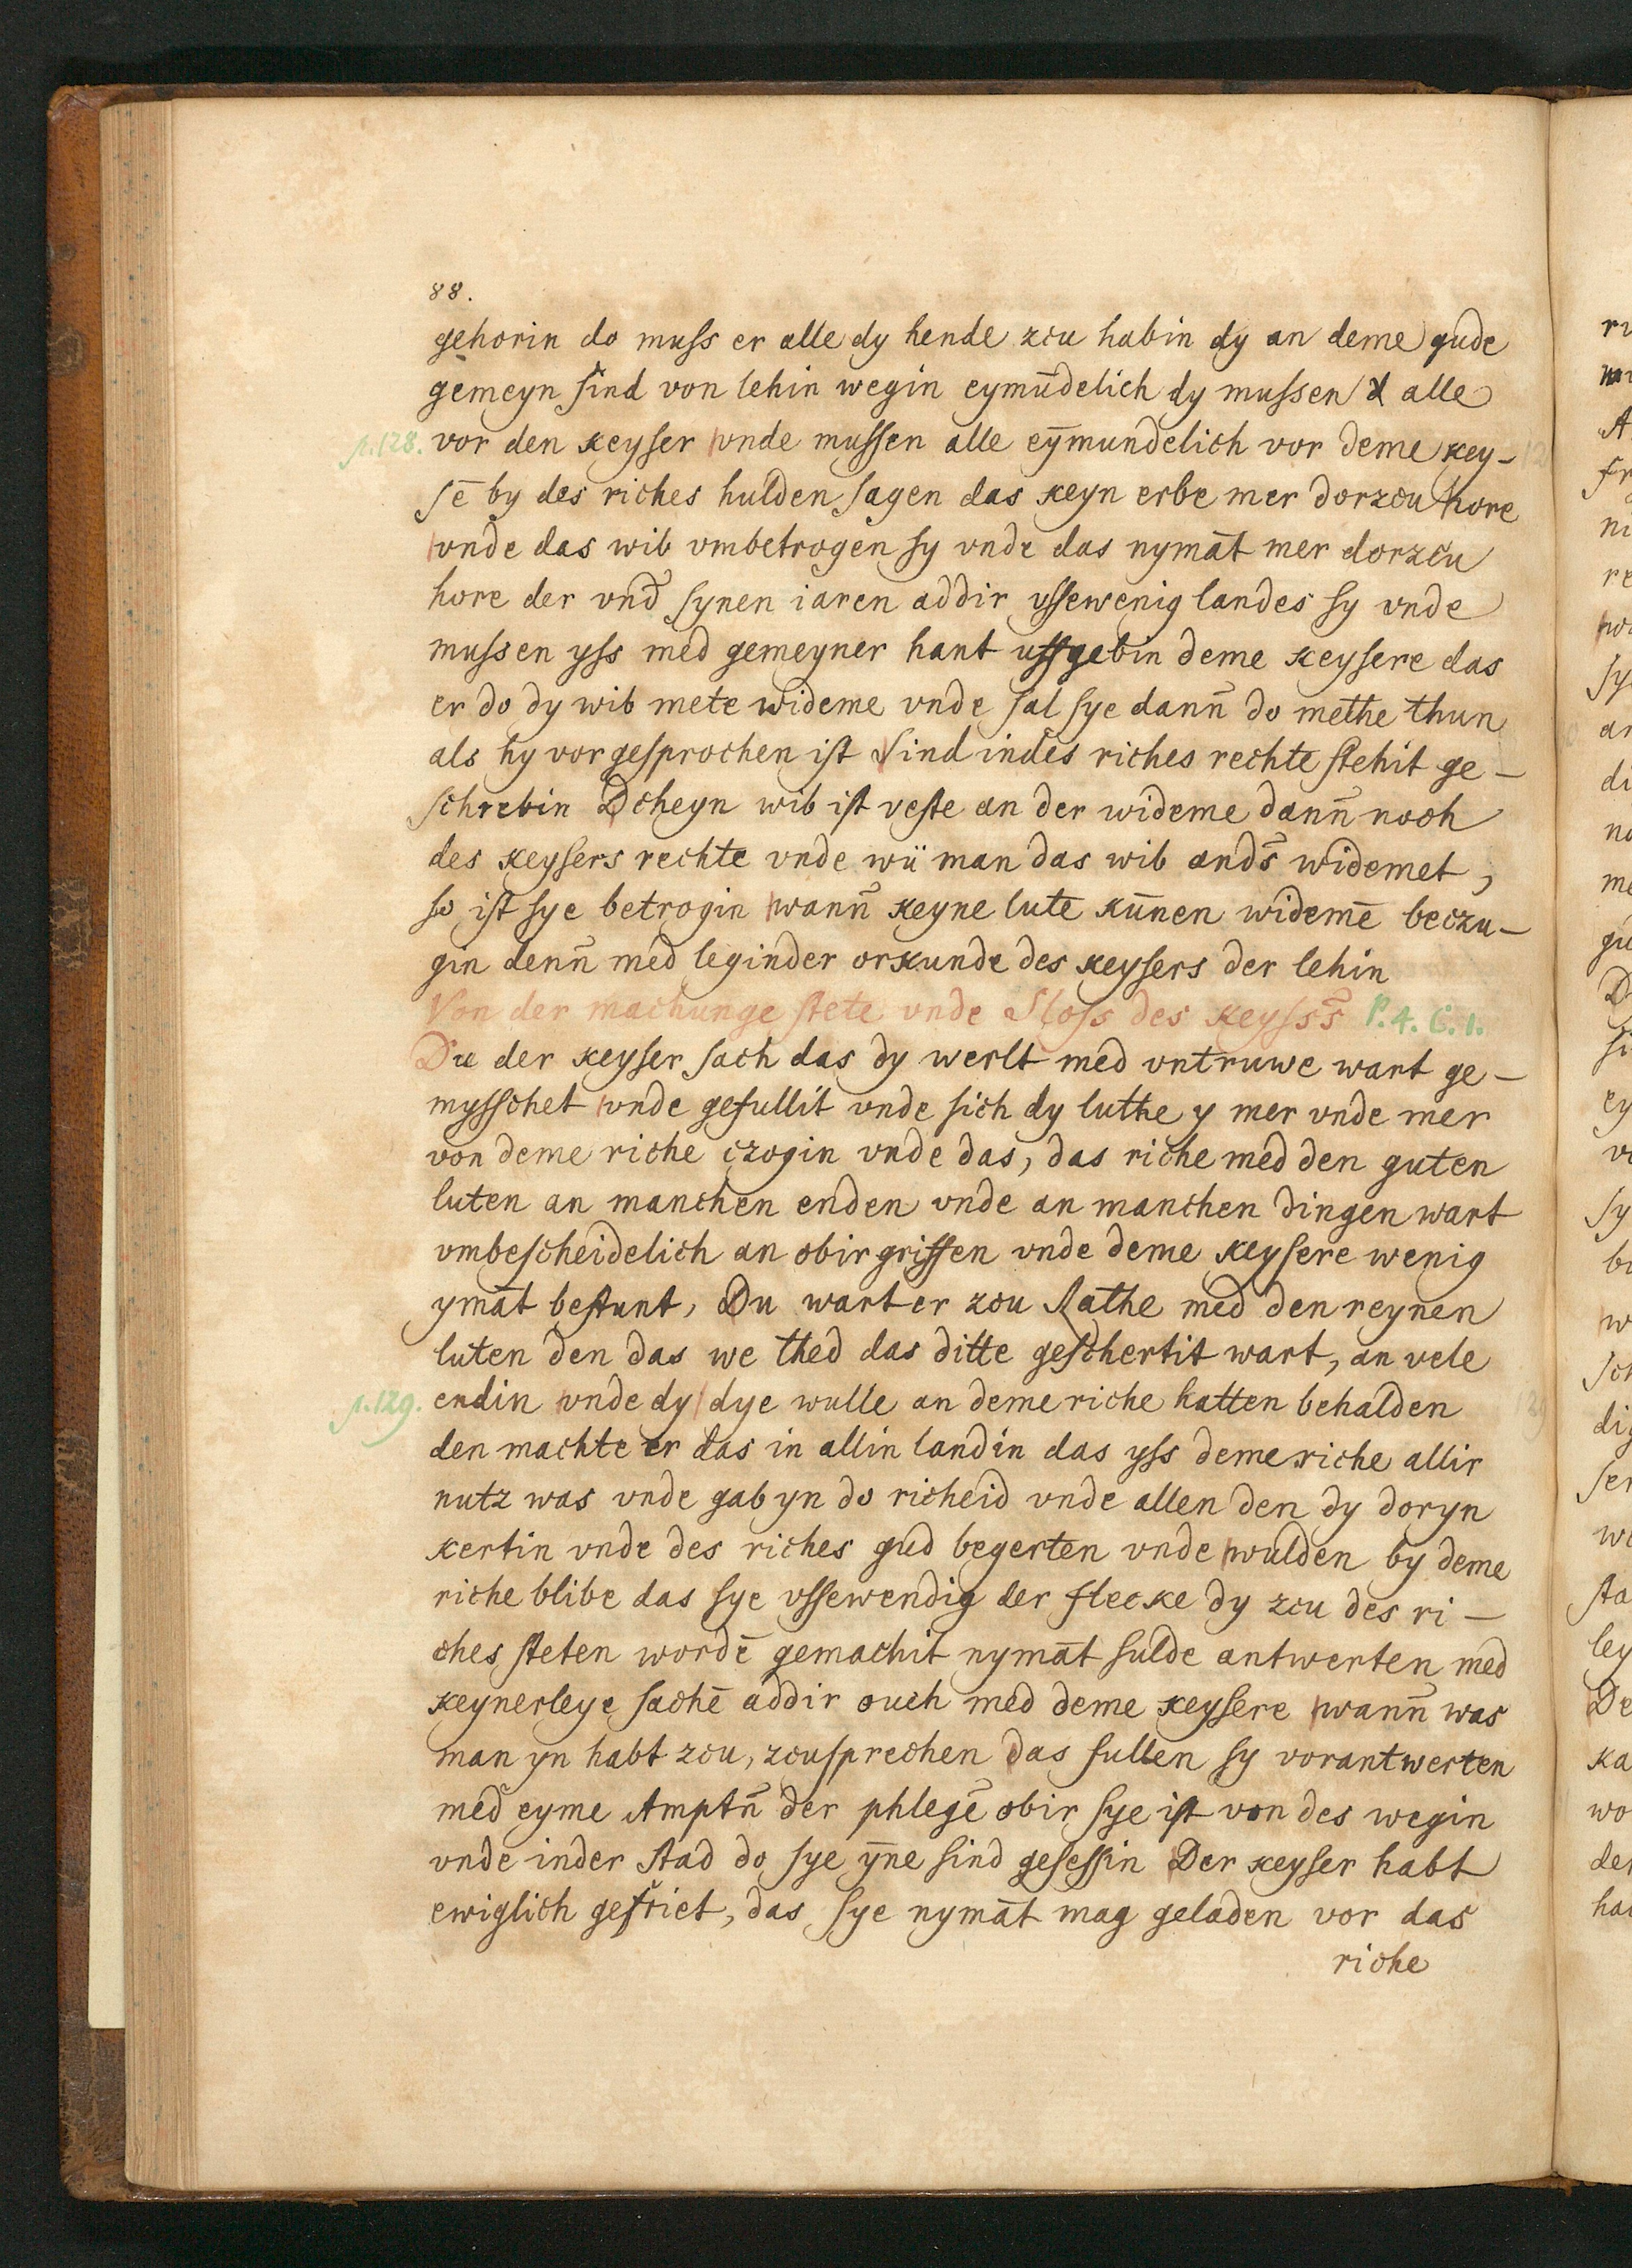 88.
gehorin do muss er alle dy hende zcu habin dy an deme gude
gemeyn sind von lehin wegin eymūdelich dy mussen alle
p. 128. vor den keyser vnde mussen alle eymundelich vor deme key-
sē by des riches hulden sagen das keyn erbe mer dorzcu hore
vnde das wib vmbetrogen sy vnde das nymāt mer dorzcu
hore der vnd̄ synen iaren addir vssewenig landes sy vnde
mussen yss med gemeyner hant uffgebin deme keysere das
er do dy wib mete wideme vnde sal sye dann̄ do methe thun
als hy vor gesprochen ist Sind indes riches rechte stehit ge-
schrebin Dcheyn wib ist veste an der wideme dann̄ noch
des keysers rechte vnde wü man das wib ands̄ widemet,
so ist sye betrogin wann̄ keyne lute kun̄en widemē beczu-
gin denn̄ med leginder orkunde des keysers der lehin
Von der machunge stete vnde Sloss des keyss̄s P. 4. C. 1.
Du der keyser sach das dy werlt med vntruwe wart ge-
mysschet vnde gefullit vnde sich dy luthe y mer vnde mer
von deme riche czogin vnde das, das riche med den guten
luten an manchen enden vnde an manchen dingen wart
vmbescheidelich an obirgriffen vnde deme keysere wenig
ymāt bestunt, Du wart er zcu Rathe med den reynen
luten den das we thed das ditte geschertit wart, an vele
p. 129. endin vnde dy dye wulle an deme riche hatten behalden
den machte er das in allin landin das yss deme riche allir
nutz was vnde gab yn do richeid vnde allen den dy doryn
kertin vnde des riches gud begerten vnde wulden by deme
riche blibe das sye vssewendig der flecke dy zcu des ri-
ches steten wordē gemachit nymāt sulde antwerten med
keynerleye sachē addir ouch med deme keysere wann̄ was
man yn habt zcu, zcusprechen das sullen sy vorantwerten
med eyme Amptn̄ der phlegē obir sye ist von des wegin
vnde inder stad do sye yn̄e sind gesessin Der keyser habt
ewiglich gefriet, das sye nymāt mag geladen vor das
riche